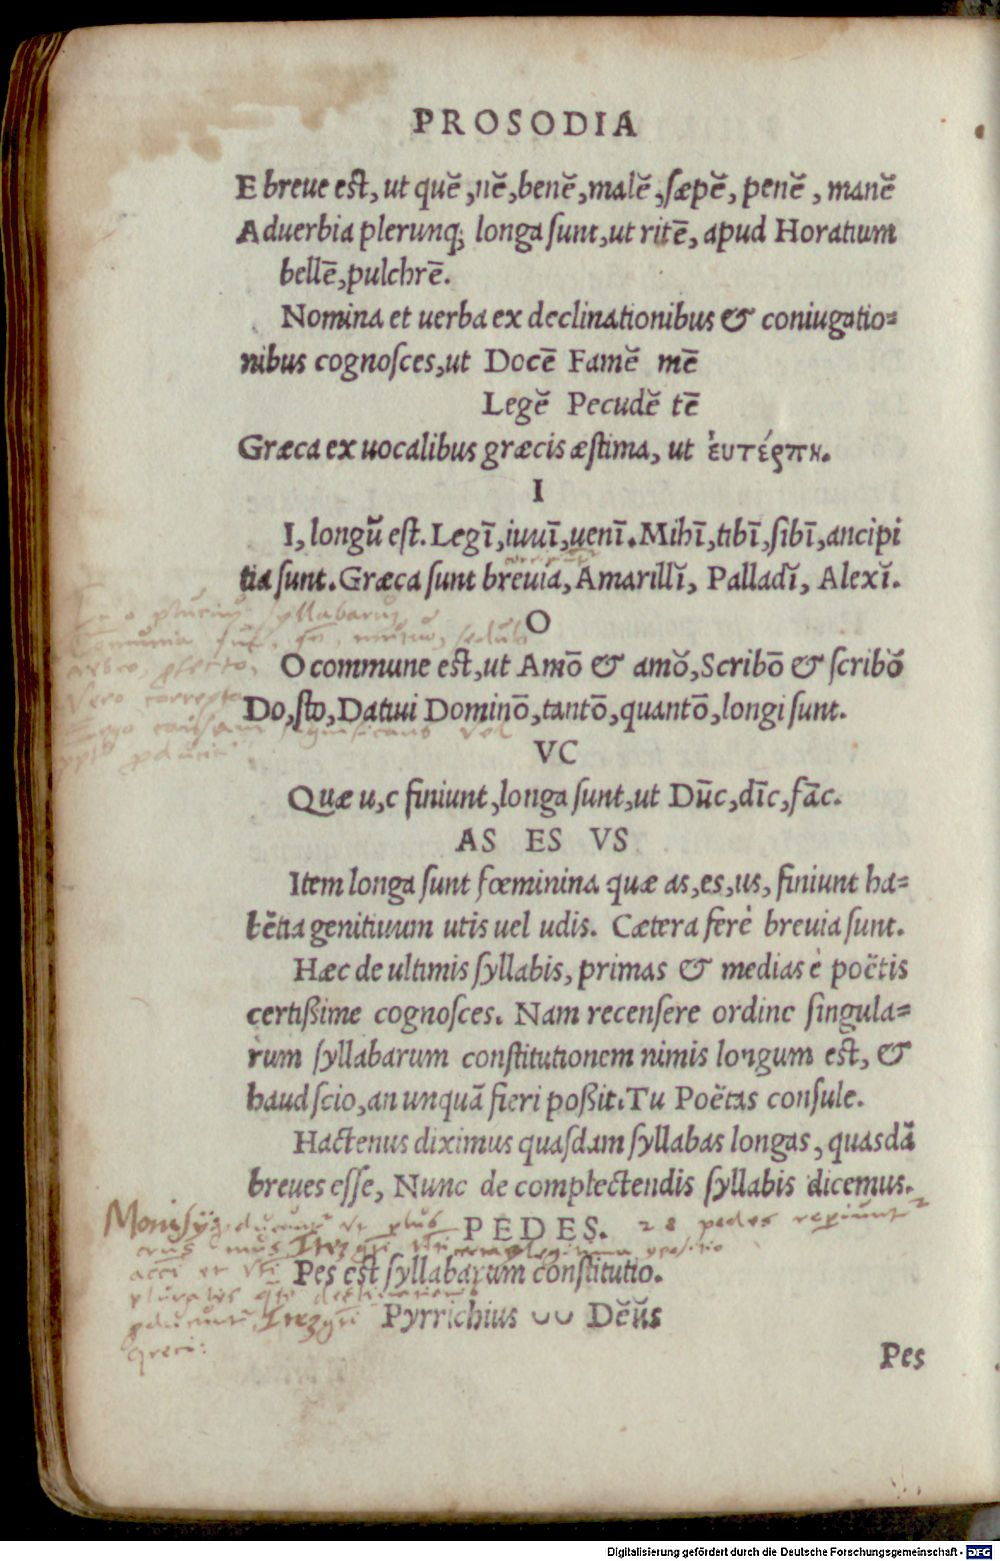 PROSODIA
E breue est, ut quĕ, nĕ, benĕ, malĕ, sæpĕ, penĕ, manĕ
Aduerbia plerunq; longa sunt, ut ritē, apud Horatium
bellē, pulchrē.
Nomina et uerba ex declinationibus & coniugatio=
nibus cognosces, ut Docē Famĕ mē
Legĕ Pecudĕ tē
Græca ex uocalibus græcis æstima, ut ἐυτέρπη.
I
I, longū est. Legī, iuuī, uenī. Mihī, tibī, sibī, ancipi
tia sunt. Græca sunt breuia, Amarillĭ, Palladĭ, Alexĭ.
O
O commune est, ut Amō & amŏ, Scribō & scribŏ
Do, sto, Datiui Dominō, tantō, quantō, longi sunt.
VC
Quæ u, c finiunt, longa sunt, ut Dūc, dīc, fāc.
AS ES VS
Item longa sunt fœminina quæ as, es, us, finiunt ha=
bētia genitiuum utis uel udis. Cætera ferè breuia sunt.
Hæc de ultimis syllabis, primas & medias è poëtis
certißime cognosces. Nam recensere ordine singula=
rum syllabarum constitutionem nimis longum est, &
haud scio, an unquā fieri poßit. Tu Poëtas consule.
Hactenus diximus quasdam syllabas longas, quasdā
breues esse, Nunc de complectendis syllabis dicemus.
PEDES. 28 pedes reperiunt
Pes est syllabarum constitutio.
Pyrrichius ᴗᴗ Dĕŭs
Pes
Digitalisierung gefördert durch die Deutsche Forschungsgemeinschaft - DFG